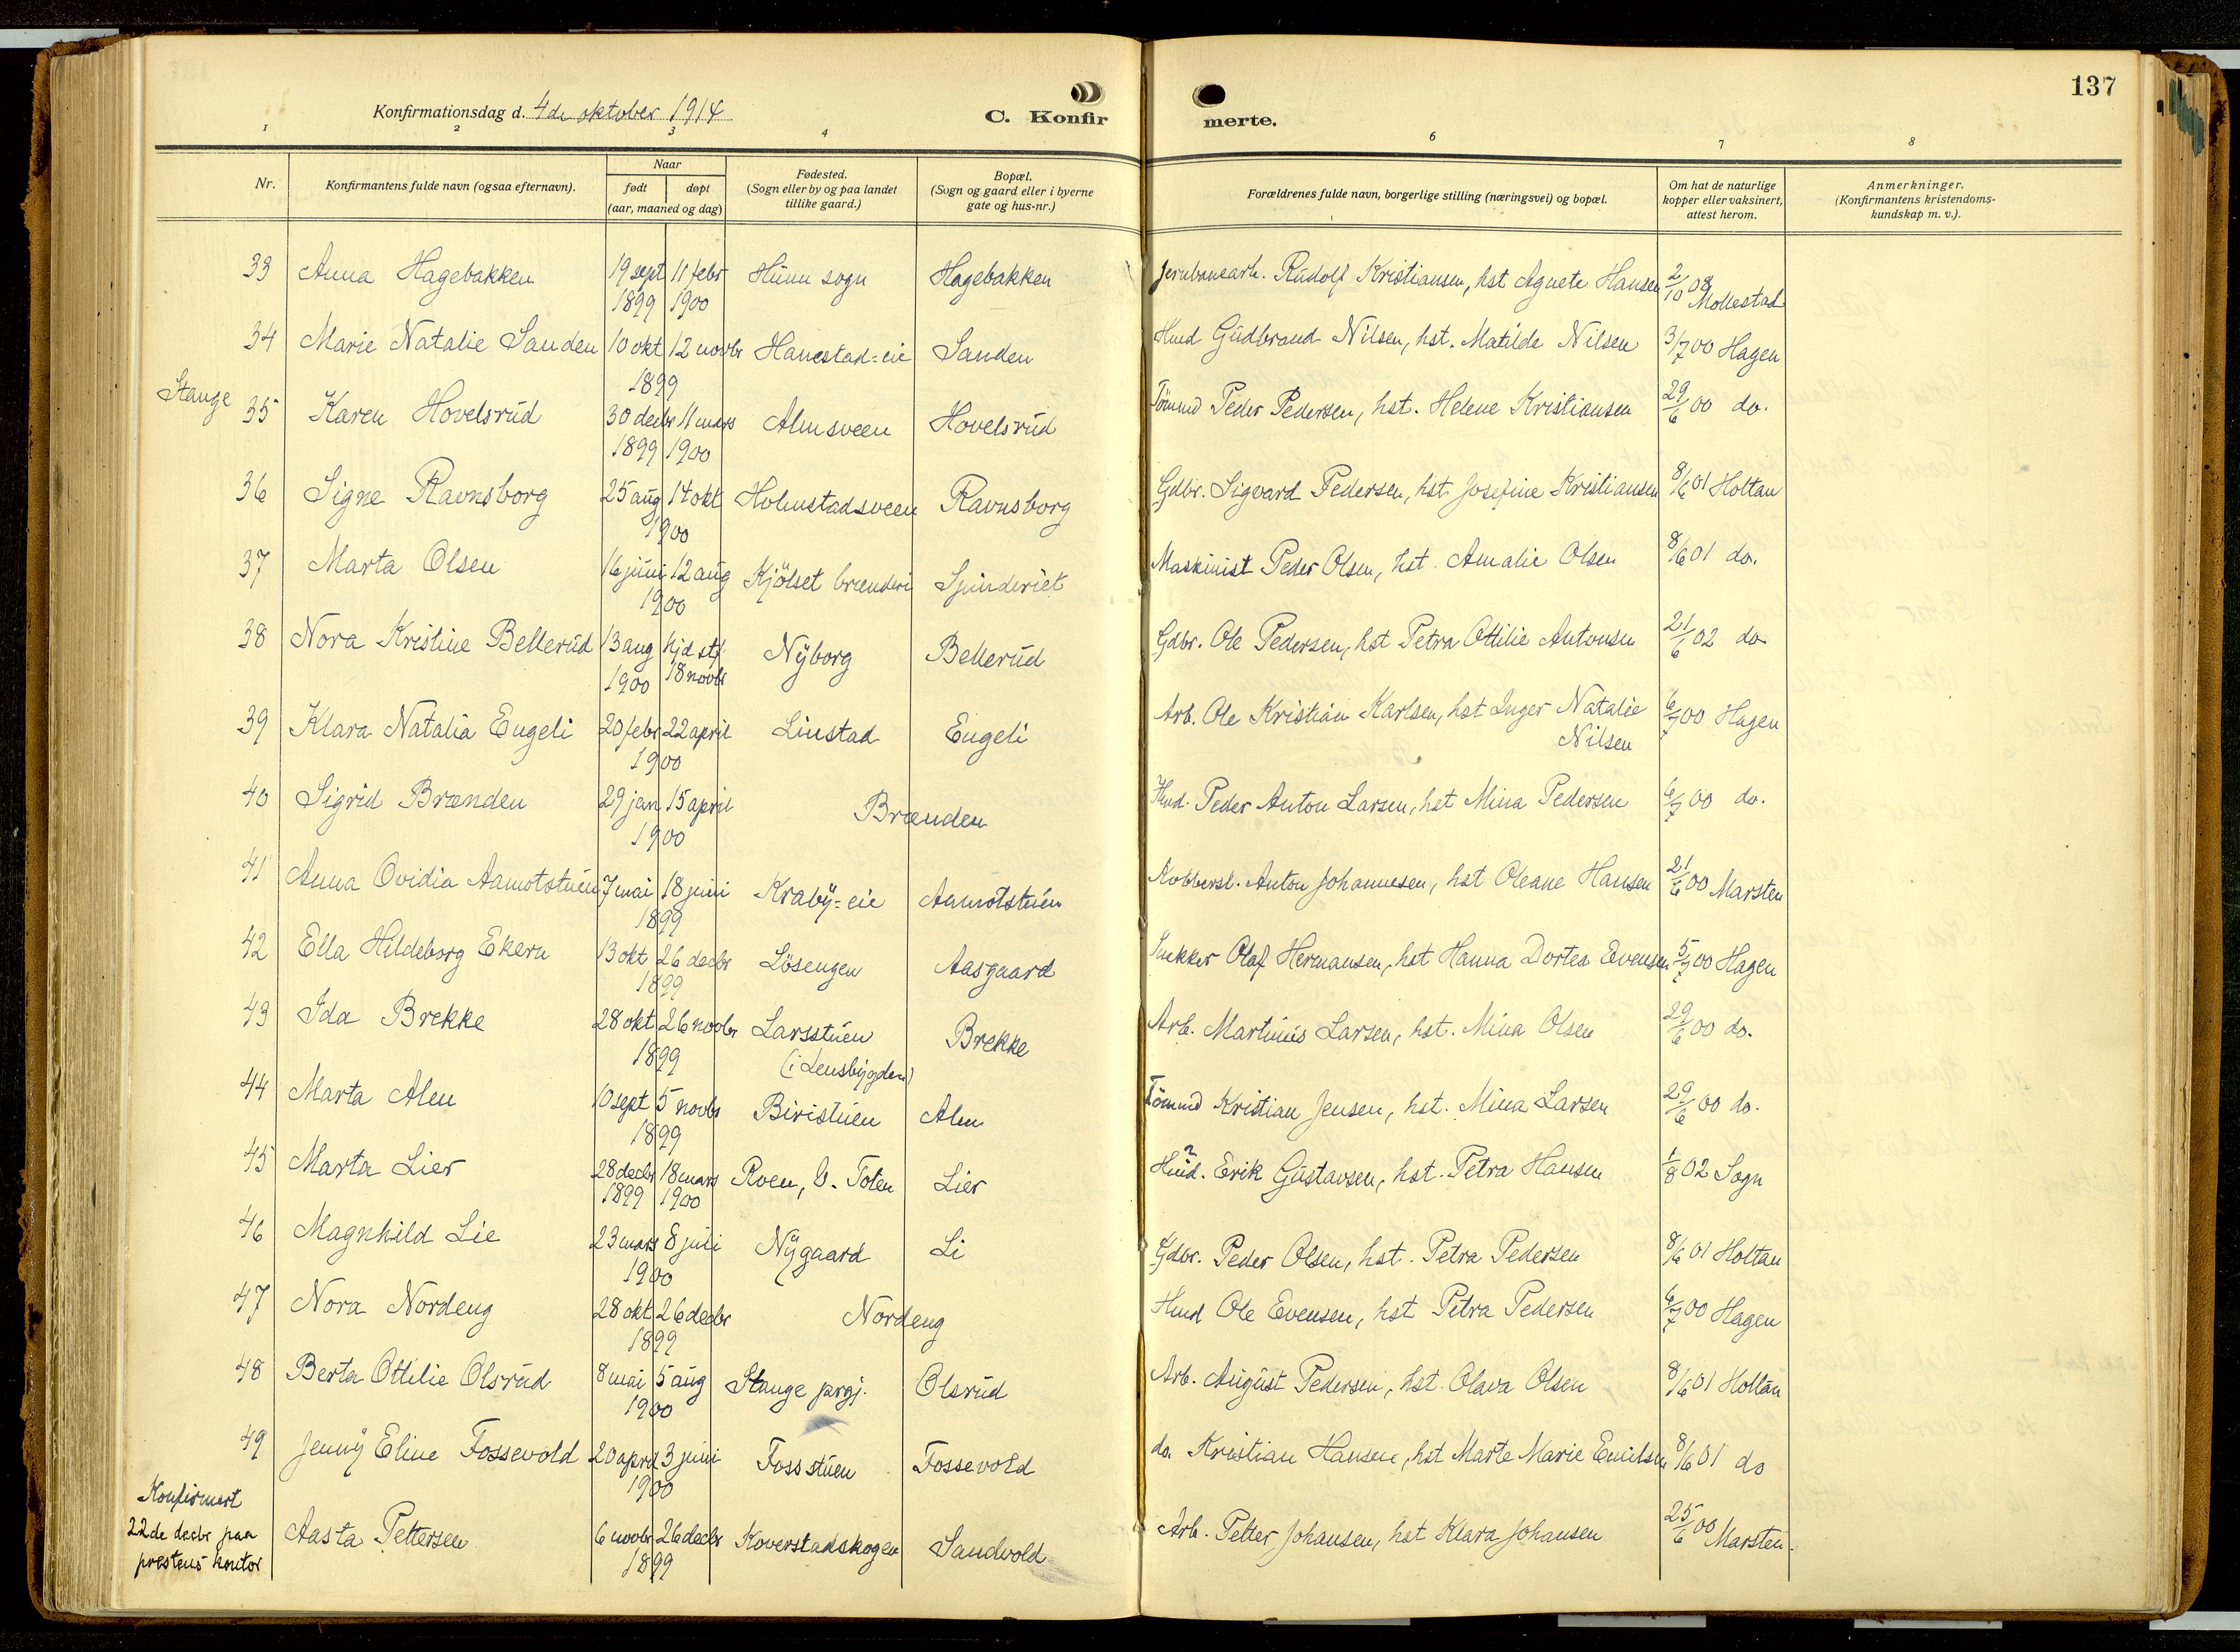 137
Konfirmationsdag d. 4de oktober 1914
C. Konfirmerte.
1 2 3 4 6 7 8
Nr.
Konfirmantens fulde navn (ogsaa efternavn).
Naar
født døpt
(aar, maaned og dag)
Fødested.
(Sogn eller by og paa landet
tillike gaard.)
Bopæl.
(Sogn og gaard eller i byerne
gate og hus-nr.)
Forældrenes fulde navn, borgerlige stilling (næringsvei) og bopæl.
Om hat de naturlige
kopper eller vaksinert,
attest herom.
Anmerkninger.
(Konfirmantens kristendoms-
kundskap m. v.).
33 Anna Hagebakken 19 sept 11 febr Hunn sogn Hagebakken Jernbanearb. Rudolf Kristiansen, hst Agnete Hansen 2/10 08
1899 1900 Mollestad
34 Marie Natalie Sanden 10 okt 12 novbr Hanestad=eie Sanden Hmd Gudbrand Nilsen, hst. Matilde Nilsen 3/7 00 Hagen
1899
Stange
35 Karen Hovelsrud 30 decbr 11 mars Almsveen Hovelsrud Tömmd Peder Pedersen, hst. Helene Kristiansen 29/6 00 do.
1899 1900
36 Signe Ravnsborg 25 aug 14 okt Holmstadsveen Ravnsborg Gdbr. Sigvard Pedersen, hst Josefine Kristiansen 8/6 01 Holtan
1900
37 Marta Olsen 16 juni 12 aug Kjölset brænderi Spinderiet Maskinist Peder Olsen, hst. Amalie Olsen 8/6 01 do.
1900
38 Nora Kristine Bellerud 13 aug hjd stf Nyborg Bellerud Gdbr. Ole Pedersen, hst Petra Ottilie Antonsen 21/6 02 do
1900 18 novbr
39 Klara Natalia Engeli 20 febr 22 april Linstad Engeli Arb. Ole Kristian Karlsen, hst Inger Natalie 6/7 00 Hagen
1900 Nilsen
40 Sigrid Brænden 29 jan 15 april Brænden Hmd. Peder Anton Larsen, hst Mina Pedersen 6/7 00 do.
1900
41 Anna Ovidia Aamotstuen 7 mai 18 juni Kraby=eie Aamotstuen Kobbersl. Anton Johannesen, hst Oleane Hansen 21/6 00 Marsten
1899
42 Ella Hildeborg Ekern 13 okt 26 decbr Lösengen Aasgaard Snekker Olaf Hermansen, hst Hanna Dortea Evensen 5/7 00 Hagen
1899
43 Ida Brekke 28 okt 26 novbr Larsstuen Brekke Arb. Martinus Larsen, hst. Mina Olsen 29/6 00 do.
1899 (i Lensbygden)
44 Marta Alm 10 sept 5 novbr Biristuen Alm Tömmd Kristian Jensen, hst. Mina Larsen 29/6 00 do.
1899
45 Marta Lier 28 decbr 18 mars Roen, V. Toten Lier Hmd. Erik Gustavsen, hst. Petra Hansen 1/8 02 Sogn
1899 1900
46 Magnhild Lie 23 mars 8 juli Nygaard Li Gdbr. Peder Olsen, hst. Petra Pedersen 8/6 01 Holtan
1900
47 Nora Nordeng 28 okt 26 decbr Nordeng Hmd Ole Evensen, hst Petra Pedersen 6/7 00 Hagen
1899
48 Berta Ottilie Olsrud 8 mai 5 aug Stange prgj. Olsrud Arb. August Pedersen, hst. Olava Olsen 8/6 01 Holtan
1900
49 Jenny Eline Fossevold 20 april 3 juni Fossstuen Fossevold do. Kristian Hansen, hst Marte Marie Emilsen 8/6 01 do
1900
Konfirmert
22de decbr paa
prestens kontor
Aasta Pettersen 6 novbr 26 decbr Koverstadskogen Sandvold Arb. Petter Johansen, hst Klara Johansen 25/6 00 Marsten.
1899